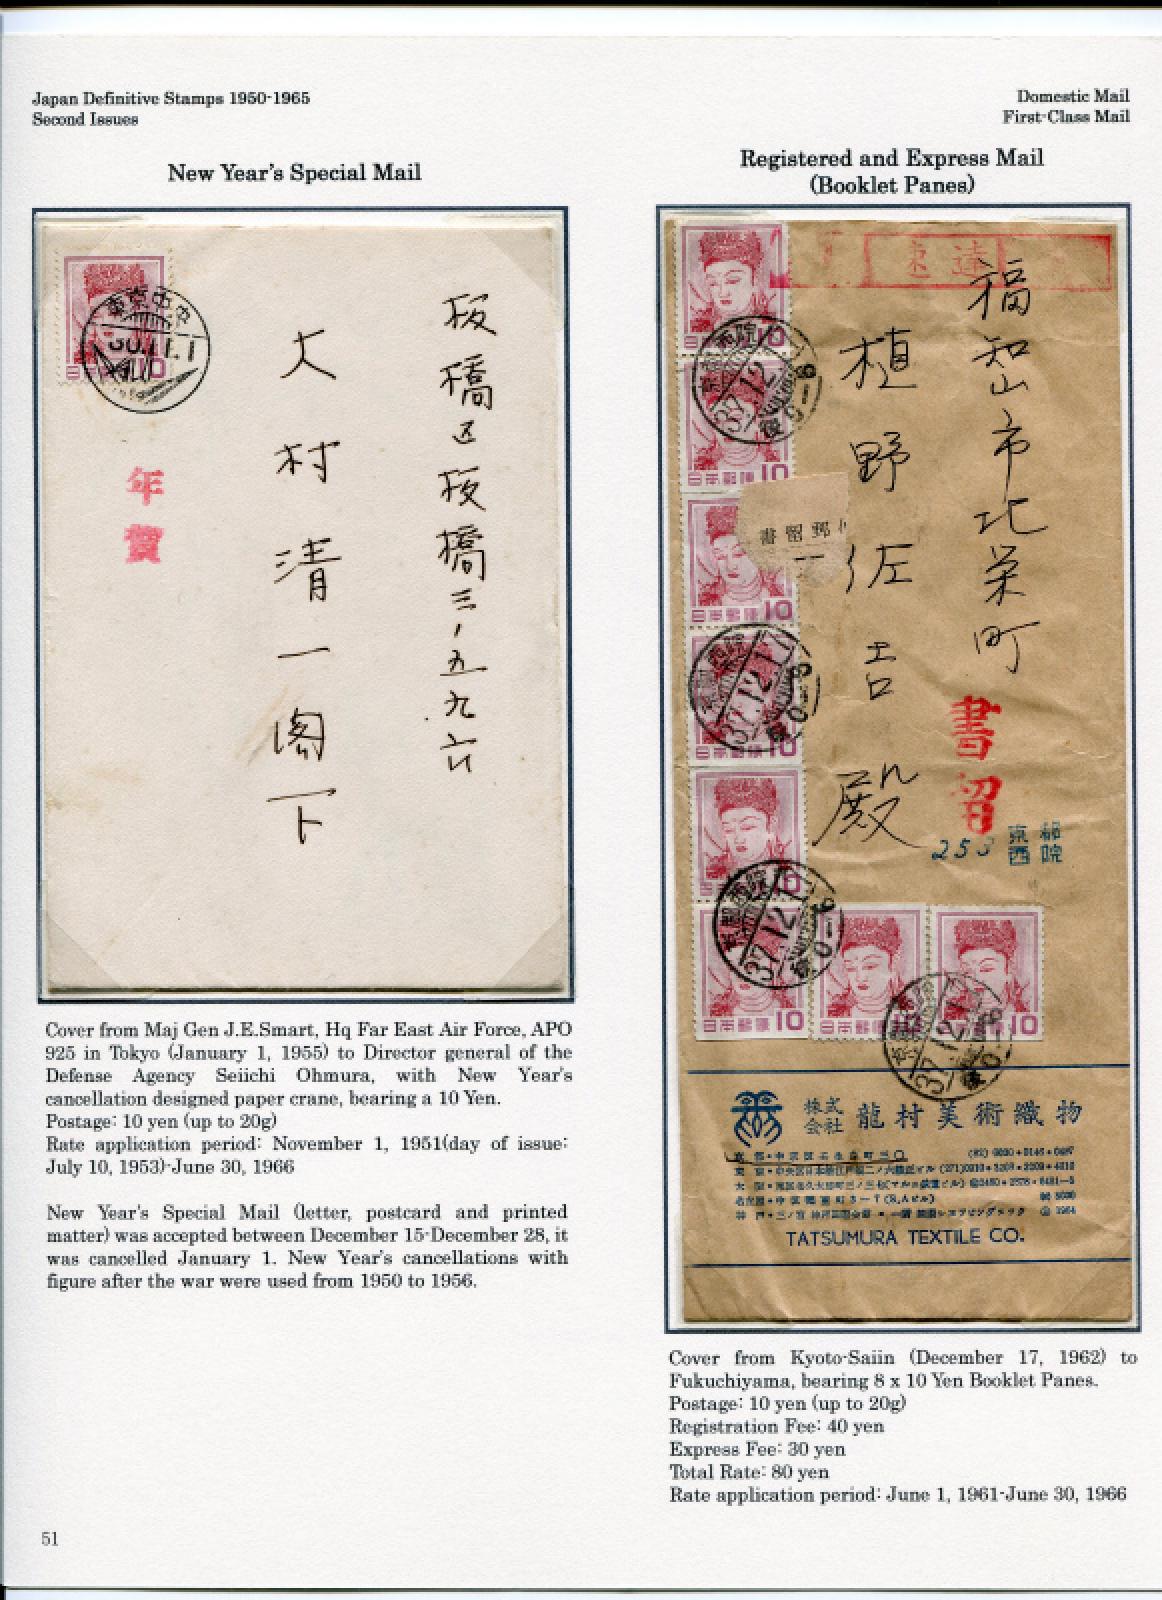 Japan Definitive Stamps 1950-1965
Second Issues
Domestic Mail
First-Class Mail
New Year's Special Mail
東京中央
30.1.1
10
年賀
板橋区板橋三ノ五九六
大村清一閣下
Cover from Maj Gen J.E.Smart, Hq Far East Air Force, APO
925 in Tokyo (January 1, 1955) to Director general of the
Defense Agency Seiichi Ohmura, with New Year's
cancellation designed paper crane, bearing a 10 Yen.
Postage: 10 yen (up to 20g)
Rate application period: November 1, 1951(day of issue:
July 10, 1953)-June 30, 1966
New Year's Special Mail (letter, postcard and printed
matter) was accepted between December 15-December 28, it
was cancelled January 1. New Year's cancellations with
figure after the war were used from 1950 to 1956.
Registered and Express Mail
(Booklet Panes)
速達
福知山市北栄町
植野佐吉殿
書留郵便
書留
253
京都
西院
日本郵便 10
日本郵便 10
日本郵便 10
日本郵便 10
日本郵便 10
日本郵便 10
日本郵便 10
日本郵便 10
株式会社 龍村美術織物
TATSUMURA TEXTILE CO.
Cover from Kyoto-Saiin (December 17, 1962) to
Fukuchiyama, bearing 8 x 10 Yen Booklet Panes.
Postage: 10 yen (up to 20g)
Registration Fee: 40 yen
Express Fee: 30 yen
Total Rate: 80 yen
Rate application period: June 1, 1961-June 30, 1966
51